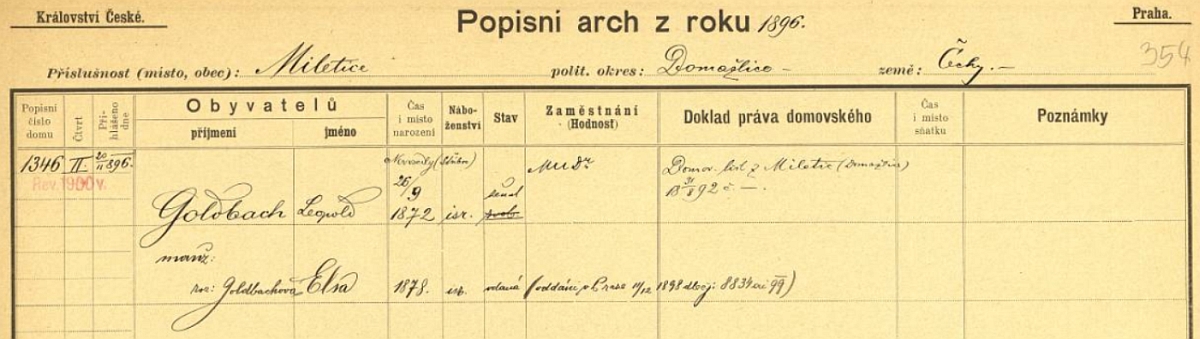 Království České.
Popisní arch z roku 1896.
Praha.
354
Příslušnost (místo, obec): Miletice polit. okres: Domažlice země: Čechy.
Popisní číslo domu
Čtvrt
Přihlášeno dne
Obyvatelů
příjmení jméno
Čas i místo narození
Náboženství
Stav
Zaměstnání (Hodnost)
Doklad práva domovského
Čas i místo sňatku
Poznámky
1346 II. 20/11 896. MUDr Domov. list z Miletic (Domažlice)
Rev. 1900 v. 26/9 31/8 92 č. —.
Goldbach Leopold 1872 isr. ženat svob.
manž:
roz: Goldbachová Elsa 1878. isr. vdaná (oddáni v Praze 11/12 1898